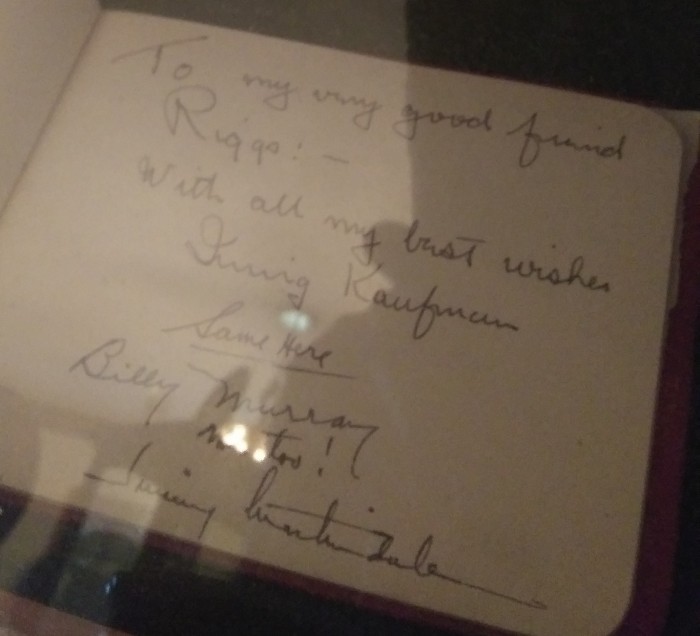 To my very good friend
Riggs: -
With all my best wishes
Irving Kaufman
Same Here
Billy Murray
me too!
Jimmy Martindale